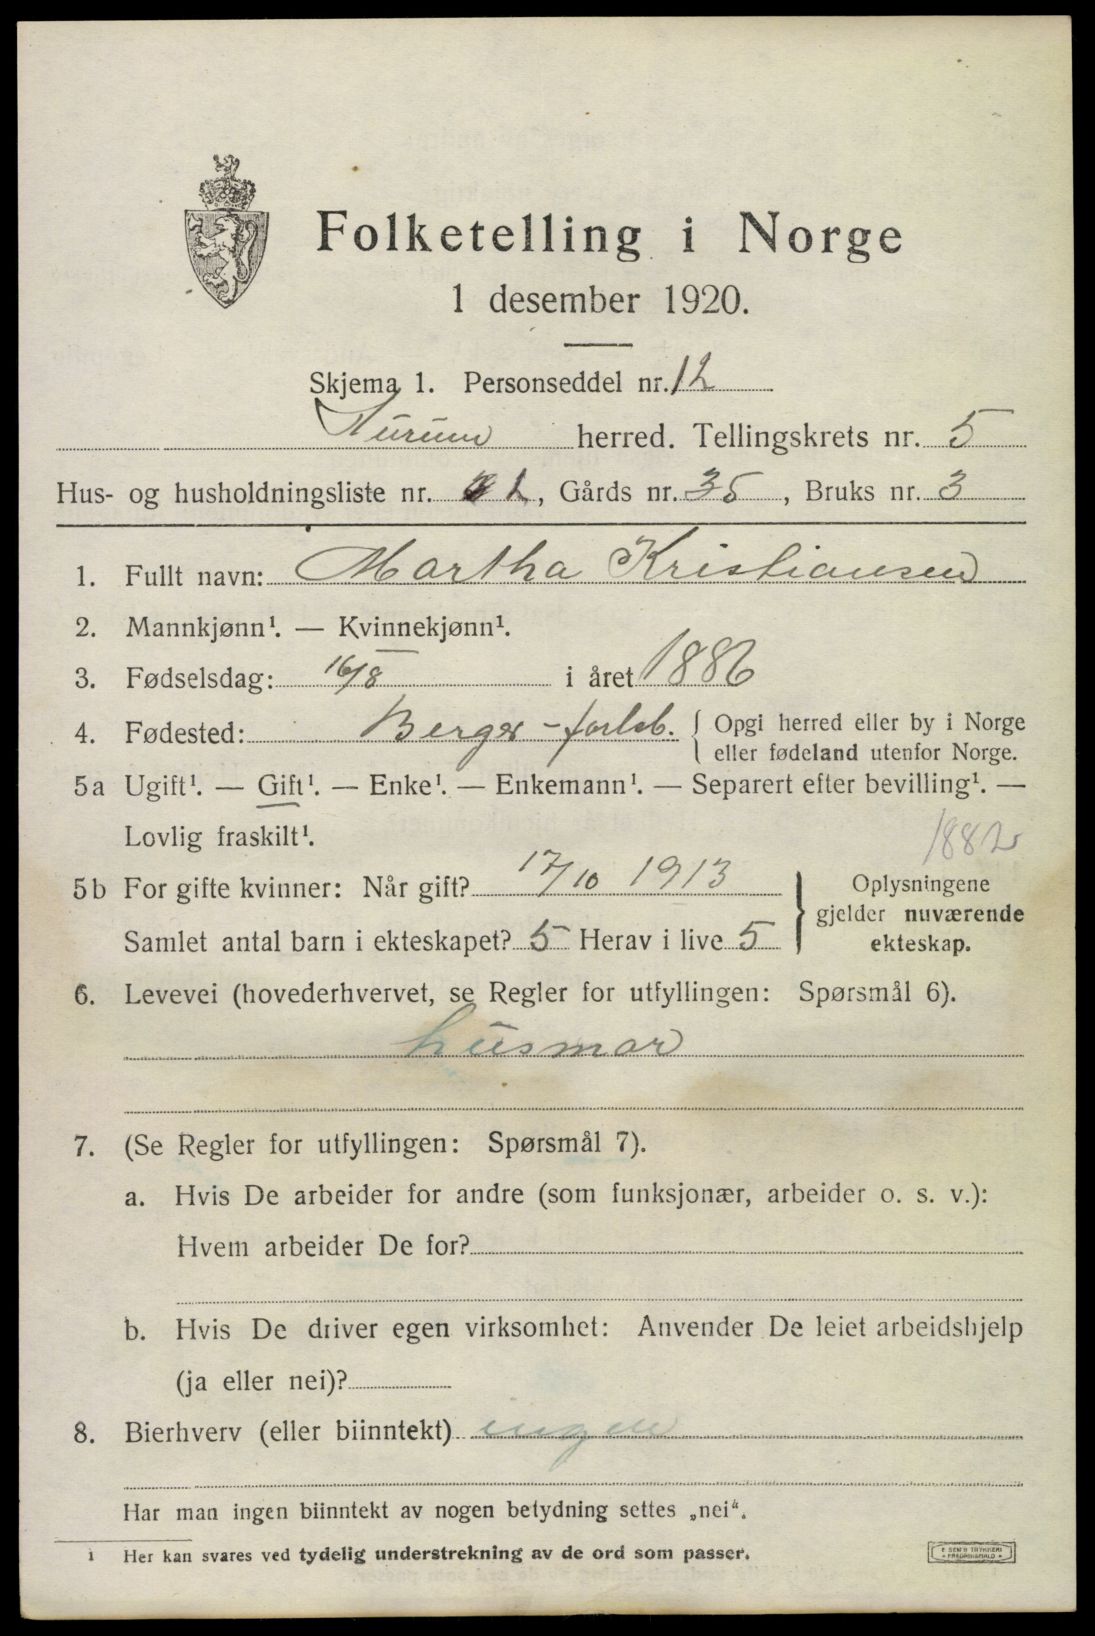 Folketelling i Norge
1 desember 1920.
Skjema 1. Personseddel nr. 12
Hurum herred. Tellingskrets nr. 5
Hus- og husholdningsliste nr. 2, Gårds nr. 35, Bruks nr. 3
1. Fullt navn: Martha Kristiansen
2. Mannkjønn¹. — Kvinnekjønn¹.
3. Fødselsdag: 16/8 i året 1886
4. Fødested: Berger { Opgi herred eller by i Norge
eller fødeland utenfor Norge.
5a Ugift¹. — Gift¹. — Enke¹. — Enkemann¹. — Separert efter bevilling¹. —
Lovlig fraskilt¹.
1882
5b For gifte kvinner: Når gift? 17/10 1913
Samlet antal barn i ekteskapet? 5 Herav i live 5
} Oplysningene
gjelder nuværende
ekteskap.
6. Levevei (hovederhvervet, se Regler for utfyllingen: Spørsmål 6).
husmor
7. (Se Regler for utfyllingen: Spørsmål 7).
a. Hvis De arbeider for andre (som funksjonær, arbeider o. s. v.):
Hvem arbeider De for?
b. Hvis De driver egen virksomhet: Anvender De leiet arbeidshjelp
(ja eller nei)?
8. Bierhverv (eller biinntekt) ingen
Har man ingen biinntekt av nogen betydning settes „nei“.
¹ Her kan svares ved tydelig understrekning av de ord som passer.